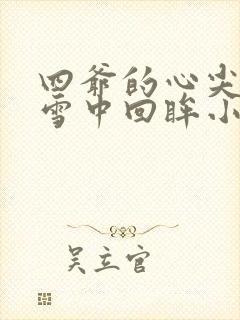 四爷的心尖
雪中回眸小
吴立官